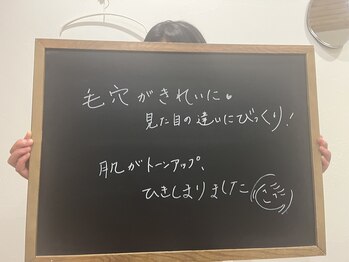 毛穴がきれいに。
見た目の違いにびっくり!
肌がトーンアップ、
ひきしまりました